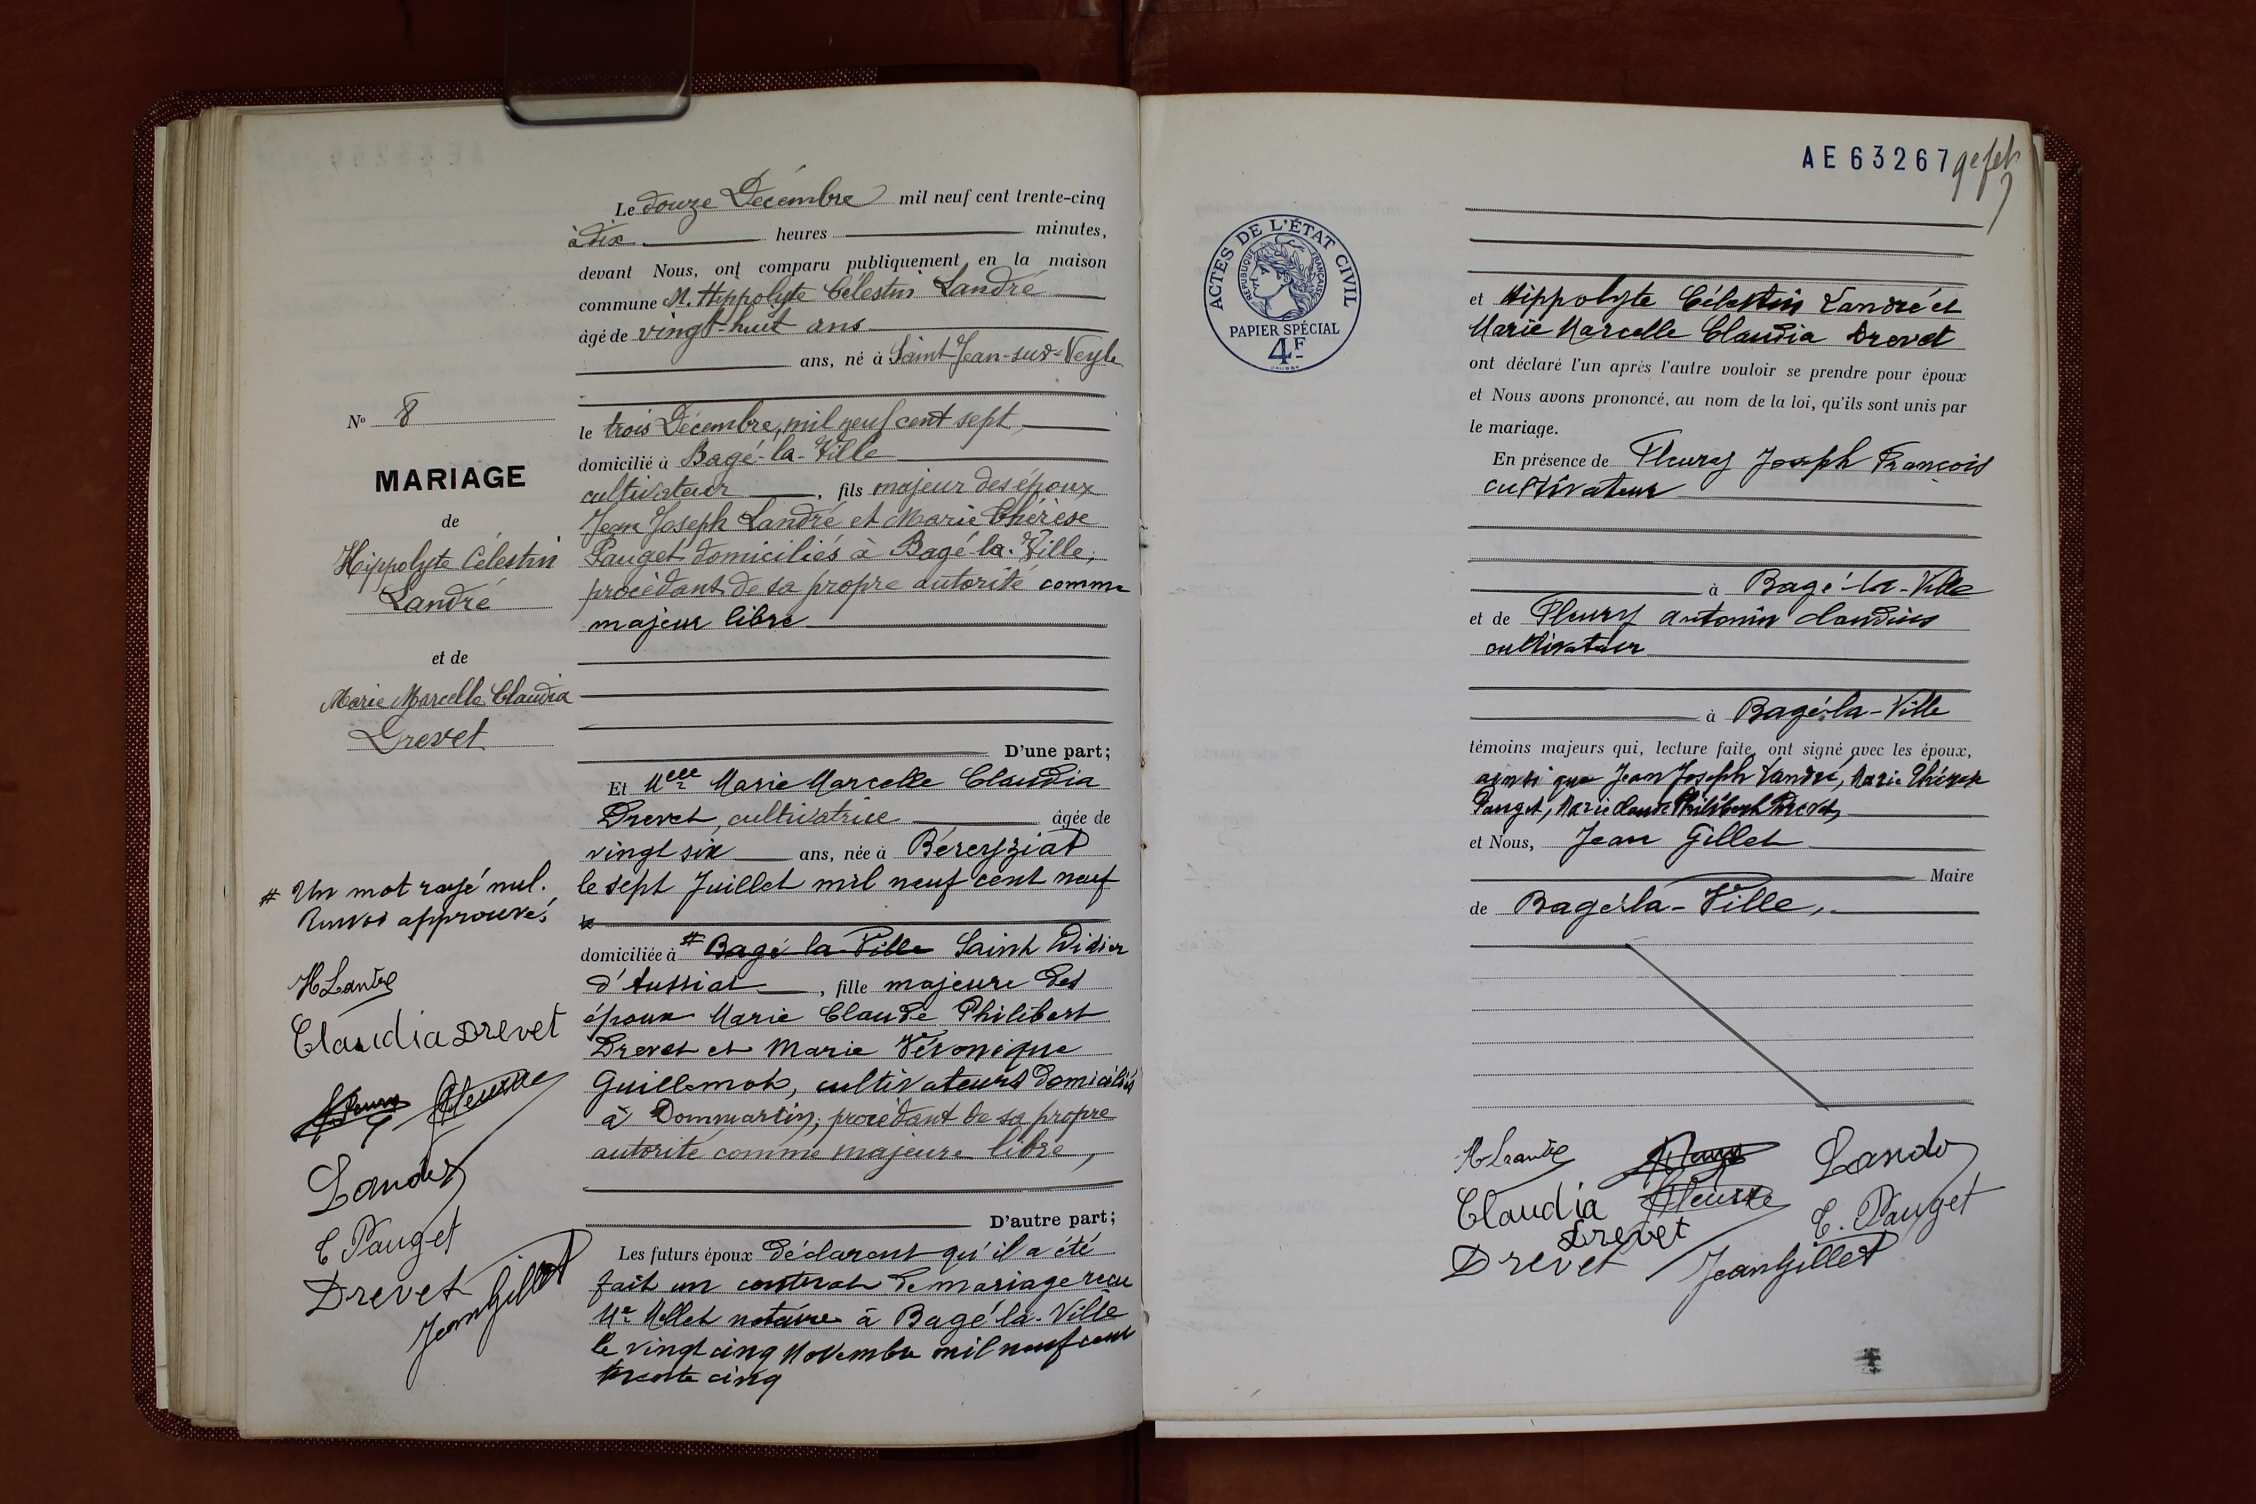 Le douze Décembre mil neuf cent trente-cinq
à dix heures minutes,
devant Nous, ont comparu publiquement en la maison
commune M. Hippolyte Célestin Landré
âgé de vingt-huit ans
ans, né à Saint-Jean-sur-Veyle
le trois Décembre, mil neuf cent sept,
domicilié à Bagé-la-Ville
cultivateur, fils majeur des époux
Jean Joseph Landré et Marie Thérèse
Pauget domiciliés à Bagé-la-Ville,
procédant de sa propre autorité comme
majeur libre
D'une part;
Et Melle Marie Marcelle Claudia
Drevet, cultivatrice âgée de
vingt six ans, née à Béreyziat
le sept Juillet mil neuf cent neuf
le
domiciliée à # Bagé la Ville Saint Didier
d'Aussiat, fille majeure des
époux Marie Claude Philibert
Drevet et Marie Véronique
Guillemot, cultivateurs domiciliés
à Dommartin, procédant de sa propre
autorité comme majeure libre,
D'autre part;
Les futurs époux déclarent qu'il a été
fait un contrat de mariage reçu
Me notaire à Bagé-la-Ville
le vingt cinq Novembre mil neuf cent
trente cinq
No 8
MARIAGE
de
Hippolyte Célestin
Landré
et de
Marie Marcelle Claudia
Drevet
# Un mot rayé nul.
Renvoi approuvé.
H Landré
Claudia Drevet
Landré
C Pauget
Drevet
Jean Gillet
AE63267
ACTES DE L'ÉTAT CIVIL
RÉPUBLIQUE FRANÇAISE
PAPIER SPÉCIAL
4F
et Hippolyte Célestin Landré et
Marie Marcelle Claudia Drevet
ont déclaré l'un après l'autre vouloir se prendre pour époux
et Nous avons prononcé, au nom de la loi, qu'ils sont unis par
le mariage.
En présence de Fleury Joseph François
cultivateur
à Bagé-la-Ville
et de Fleury Antonin Claudius
cultivateur
à Bagé-la-Ville
témoins majeurs qui, lecture faite, ont signé avec les époux,
ainsi que Jean Joseph Landré, Marie Thérèse
Pauget, Marie Claude Philibert Drevet,
et Nous, Jean Gillet
Maire
de Bagé-la-Ville,
H Landré
Landré
Claudia
Drevet
C. Pauget
Drevet
Jean Gillet